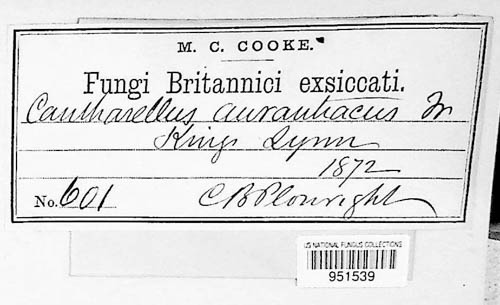 M. C. COOKE.
Fungi Britannici exsiccati.
Cantharellus aurantiacus Fr
Kings Lynn
1872
No. 601 C B Plowright
US NATIONAL FUNGUS COLLECTIONS
951539